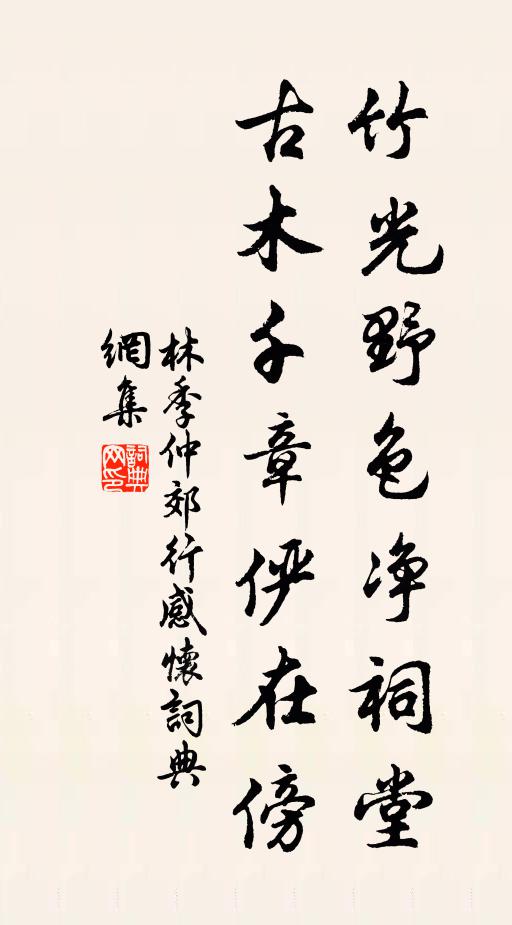 竹光野色净祠堂
古木千章俨在傍
林季仲郊行感懷詞典
網集
詞典
网印